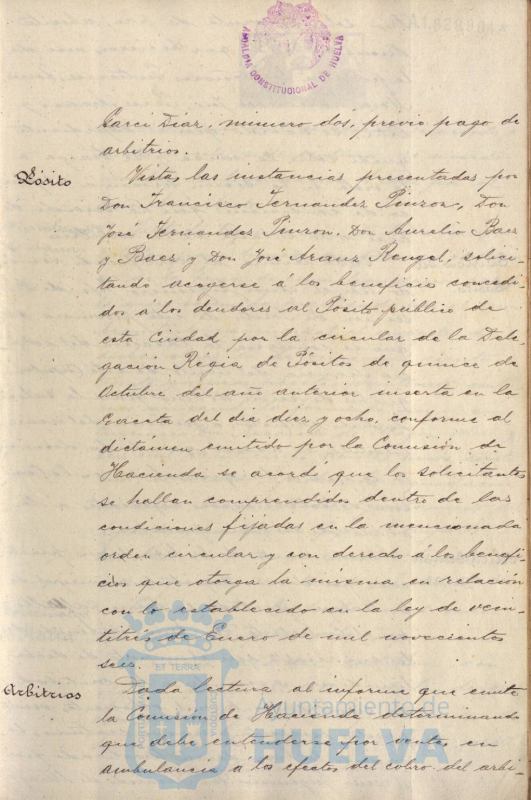 ALCALDIA CONSTITUCIONAL DE HUELVA
Garci Diaz, número dós, previo pago de
arbitrios.
Pósito
Vistas, las instancias presentadas por
Don Francisco Fernandez Pinzon, Don
José Fernandez Pinzon, Don Aurelio Baez
y Baez y Don José Aranz Rengel, solici-
tando acogerse á los beneficios concedi-
dos á los deudores al Pósito público de
esta Ciudad por la circular de la Dele-
gación Régia de Pósitos de quince de
Octubre del año anterior inserta en la
Gaceta del dia diez y ocho, conforme al
dictámen emitido por la Comisión de
Hacienda se acordó que los solicitantes
se hallan comprendidos dentro de las
condiciones fijadas en la mencionada
orden circular y con derecho á los benefi-
cios que otorga la misma en relación
con lo establecido en la ley de vein-
titrés de Enero de mil novecientos
seis.
Arbitrios
Dada lectura al informe que emite
la Comisión de Hacienda determinando
que debe entenderse por ventas en
ambulancia á los efectos del cobro del arbi-
ET TERRA
Ayuntamiento de
HUELVA